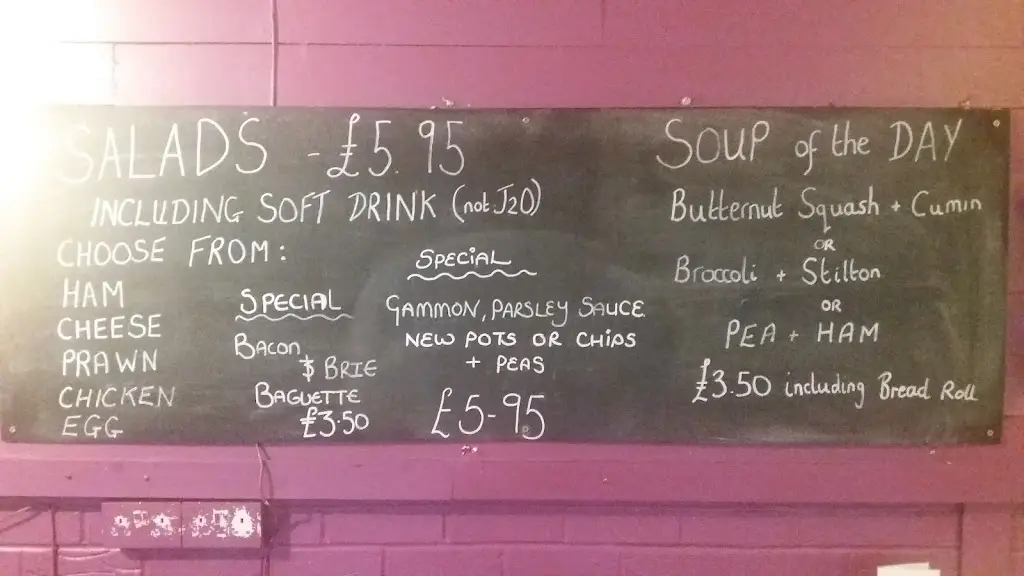 SALADS - £5.95
INCLUDING SOFT DRINK (not J2O)
CHOOSE FROM:
HAM
CHEESE
PRAWN
CHICKEN
EGG
SPECIAL
BACON
$ BRIE
BAGUETTE
£3.50
SPECIAL
GAMMON, PARSLEY SAUCE
NEW POTS OR CHIPS
+ PEAS
£5-95
SOUP of the DAY
Butternut Squash + Cumin
OR
Broccoli + Stilton
OR
PEA + HAM
£3.50 including Bread Roll